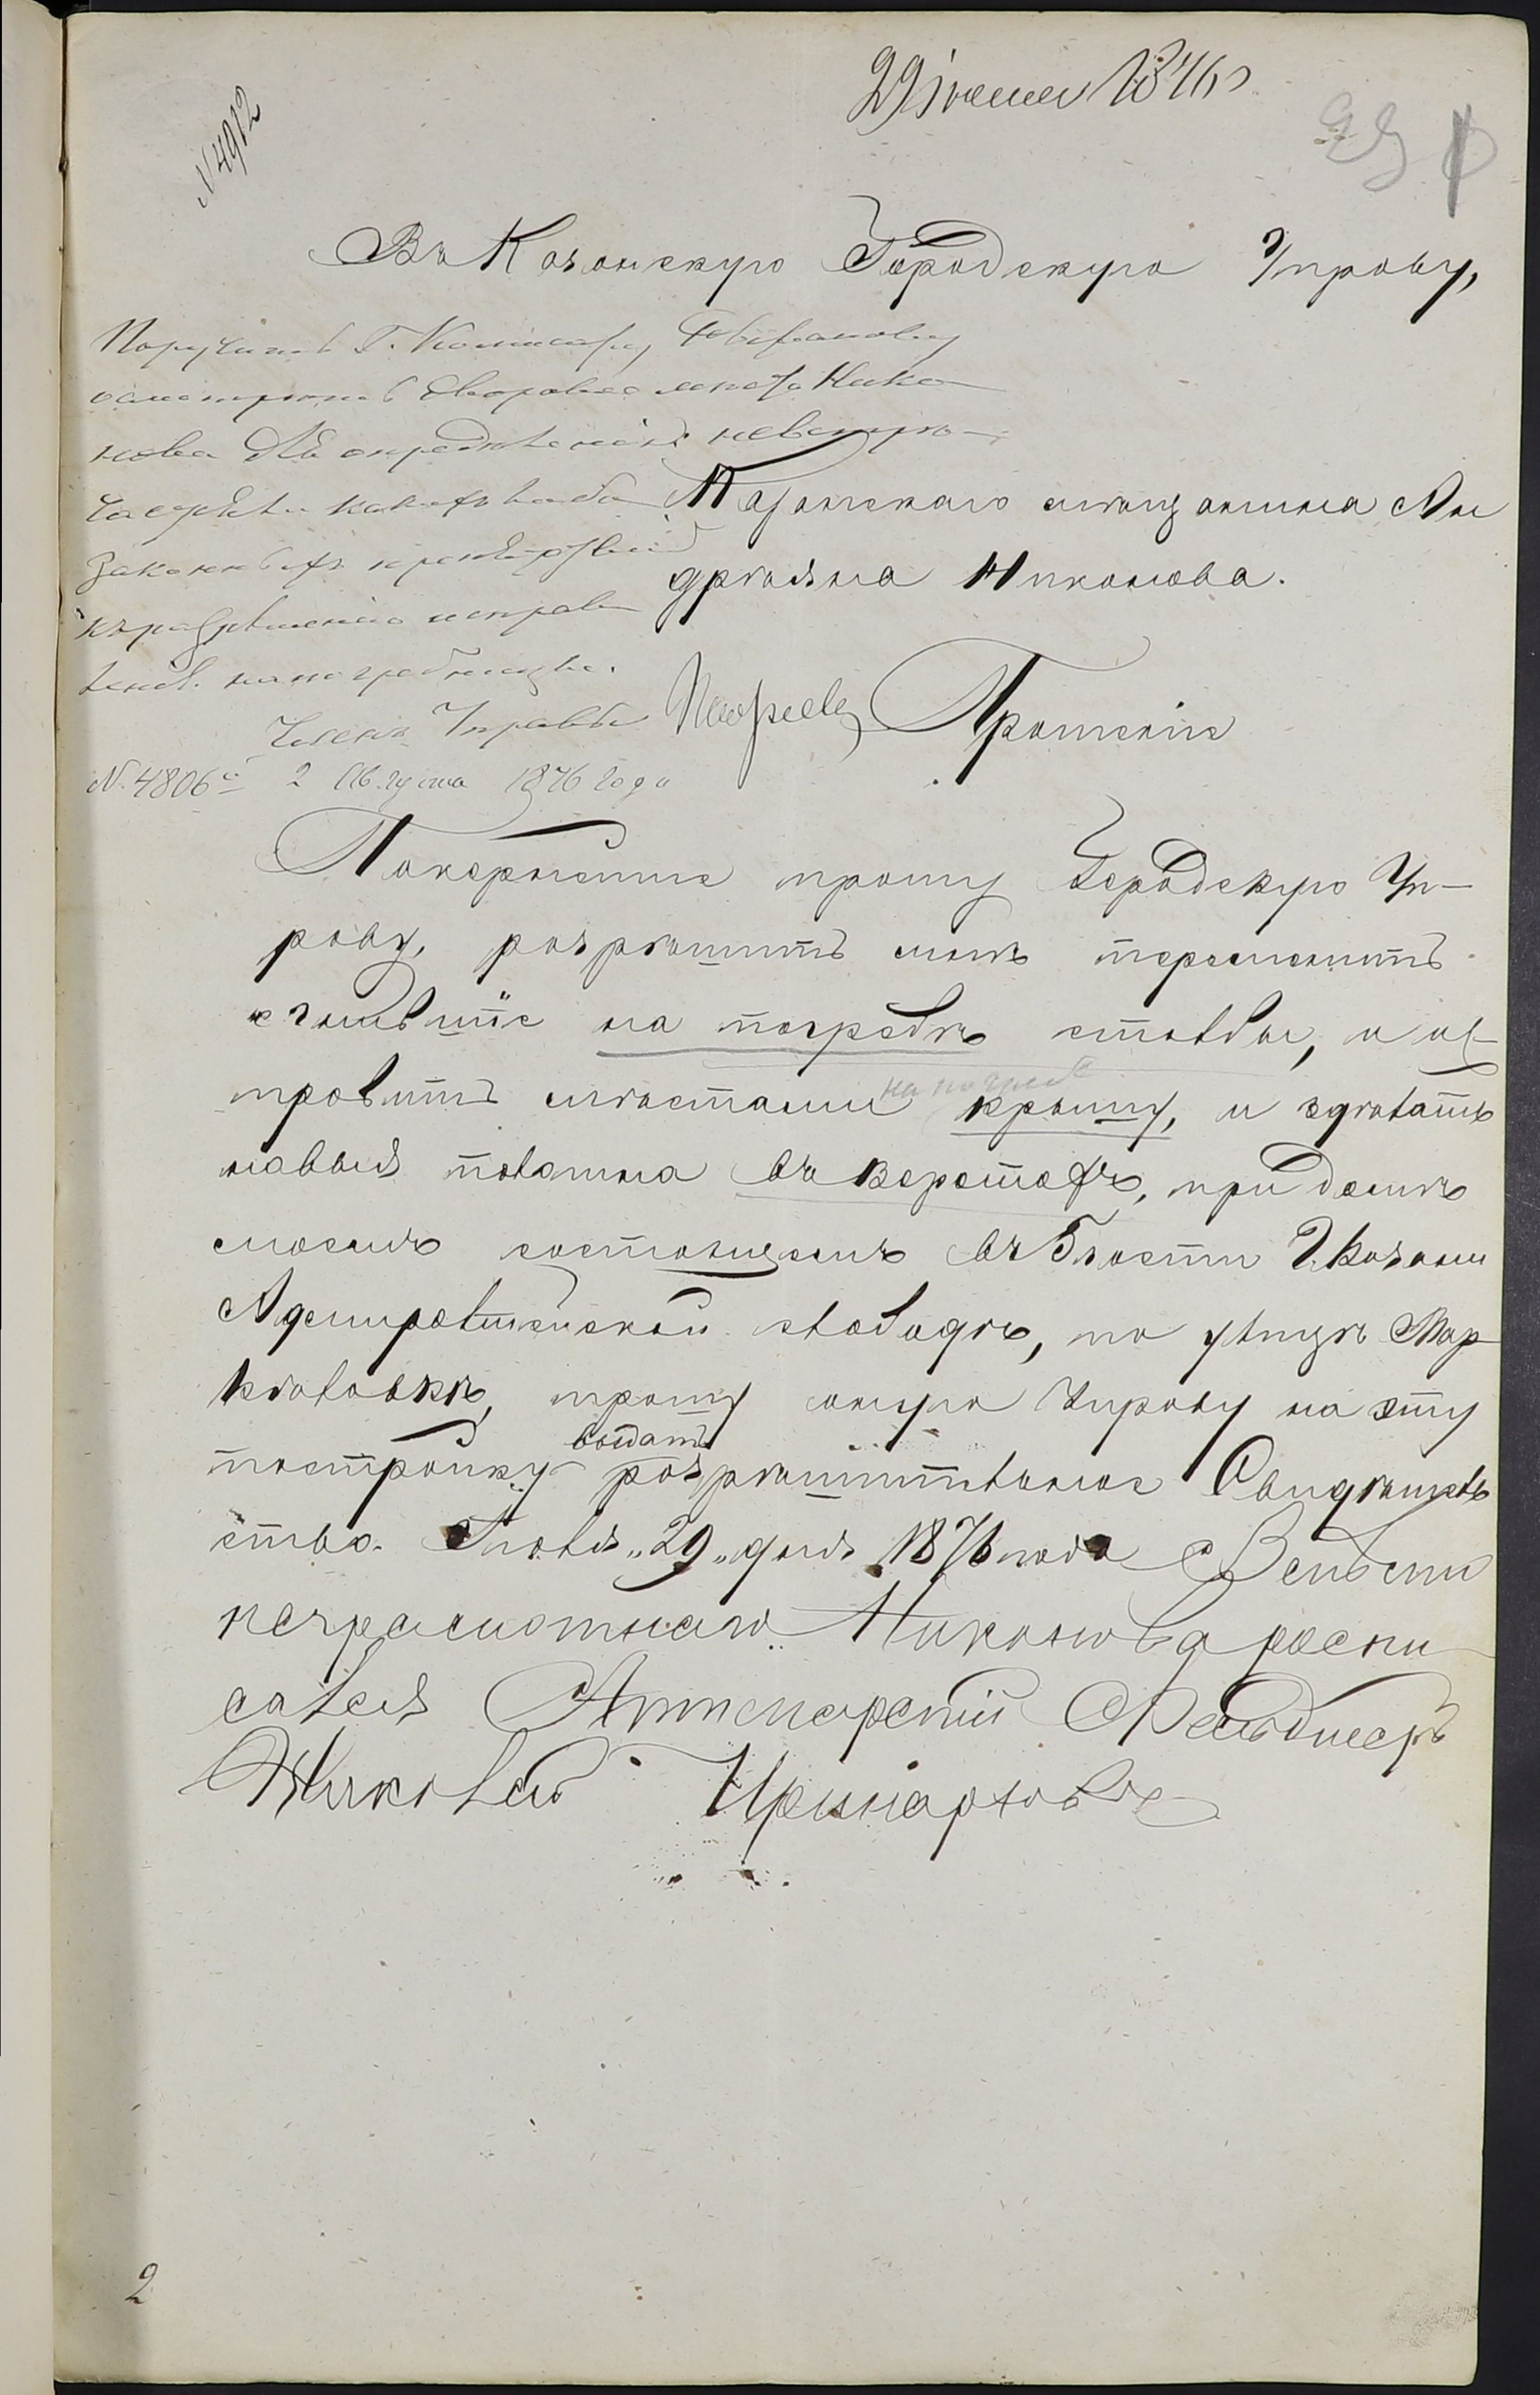 29 июля 1876 г
N 4912
Въ Казанскую Городскую Управу,
Поручить Г. Комисару
осмотрить дворовое место Нико
нова для определенія не встре
чается ли какихъ либо
законныхъ препятствий
къ разрешенію исправ
леній на погребнице.
Членъ Управы
N. 4806й 2 Августа 1876 года
Казанскаго мѣщанина Ан
дрѣяна Никонова.
Прошеніе
Покорнейше прошу Городскую Уп-
раву, разрѣшить мнѣ переменить
сгнившіе на погребѣ столбы, и ис
править мѣстами на погребе крышу, и здѣлать
новыя
при домѣ
моемъ состоящемъ въ 5 части Г. Казани
Адмиралтейской слободѣ, по улицѣ Мар
кѣловкѣ, прошу оную Управу на эту
постройку выдать разрѣшительное Свидѣтель
ство. Июля „29„ дня 1876 года
неграмотнаго Никонова роспи
сался Фельдшеръ
Николай
2